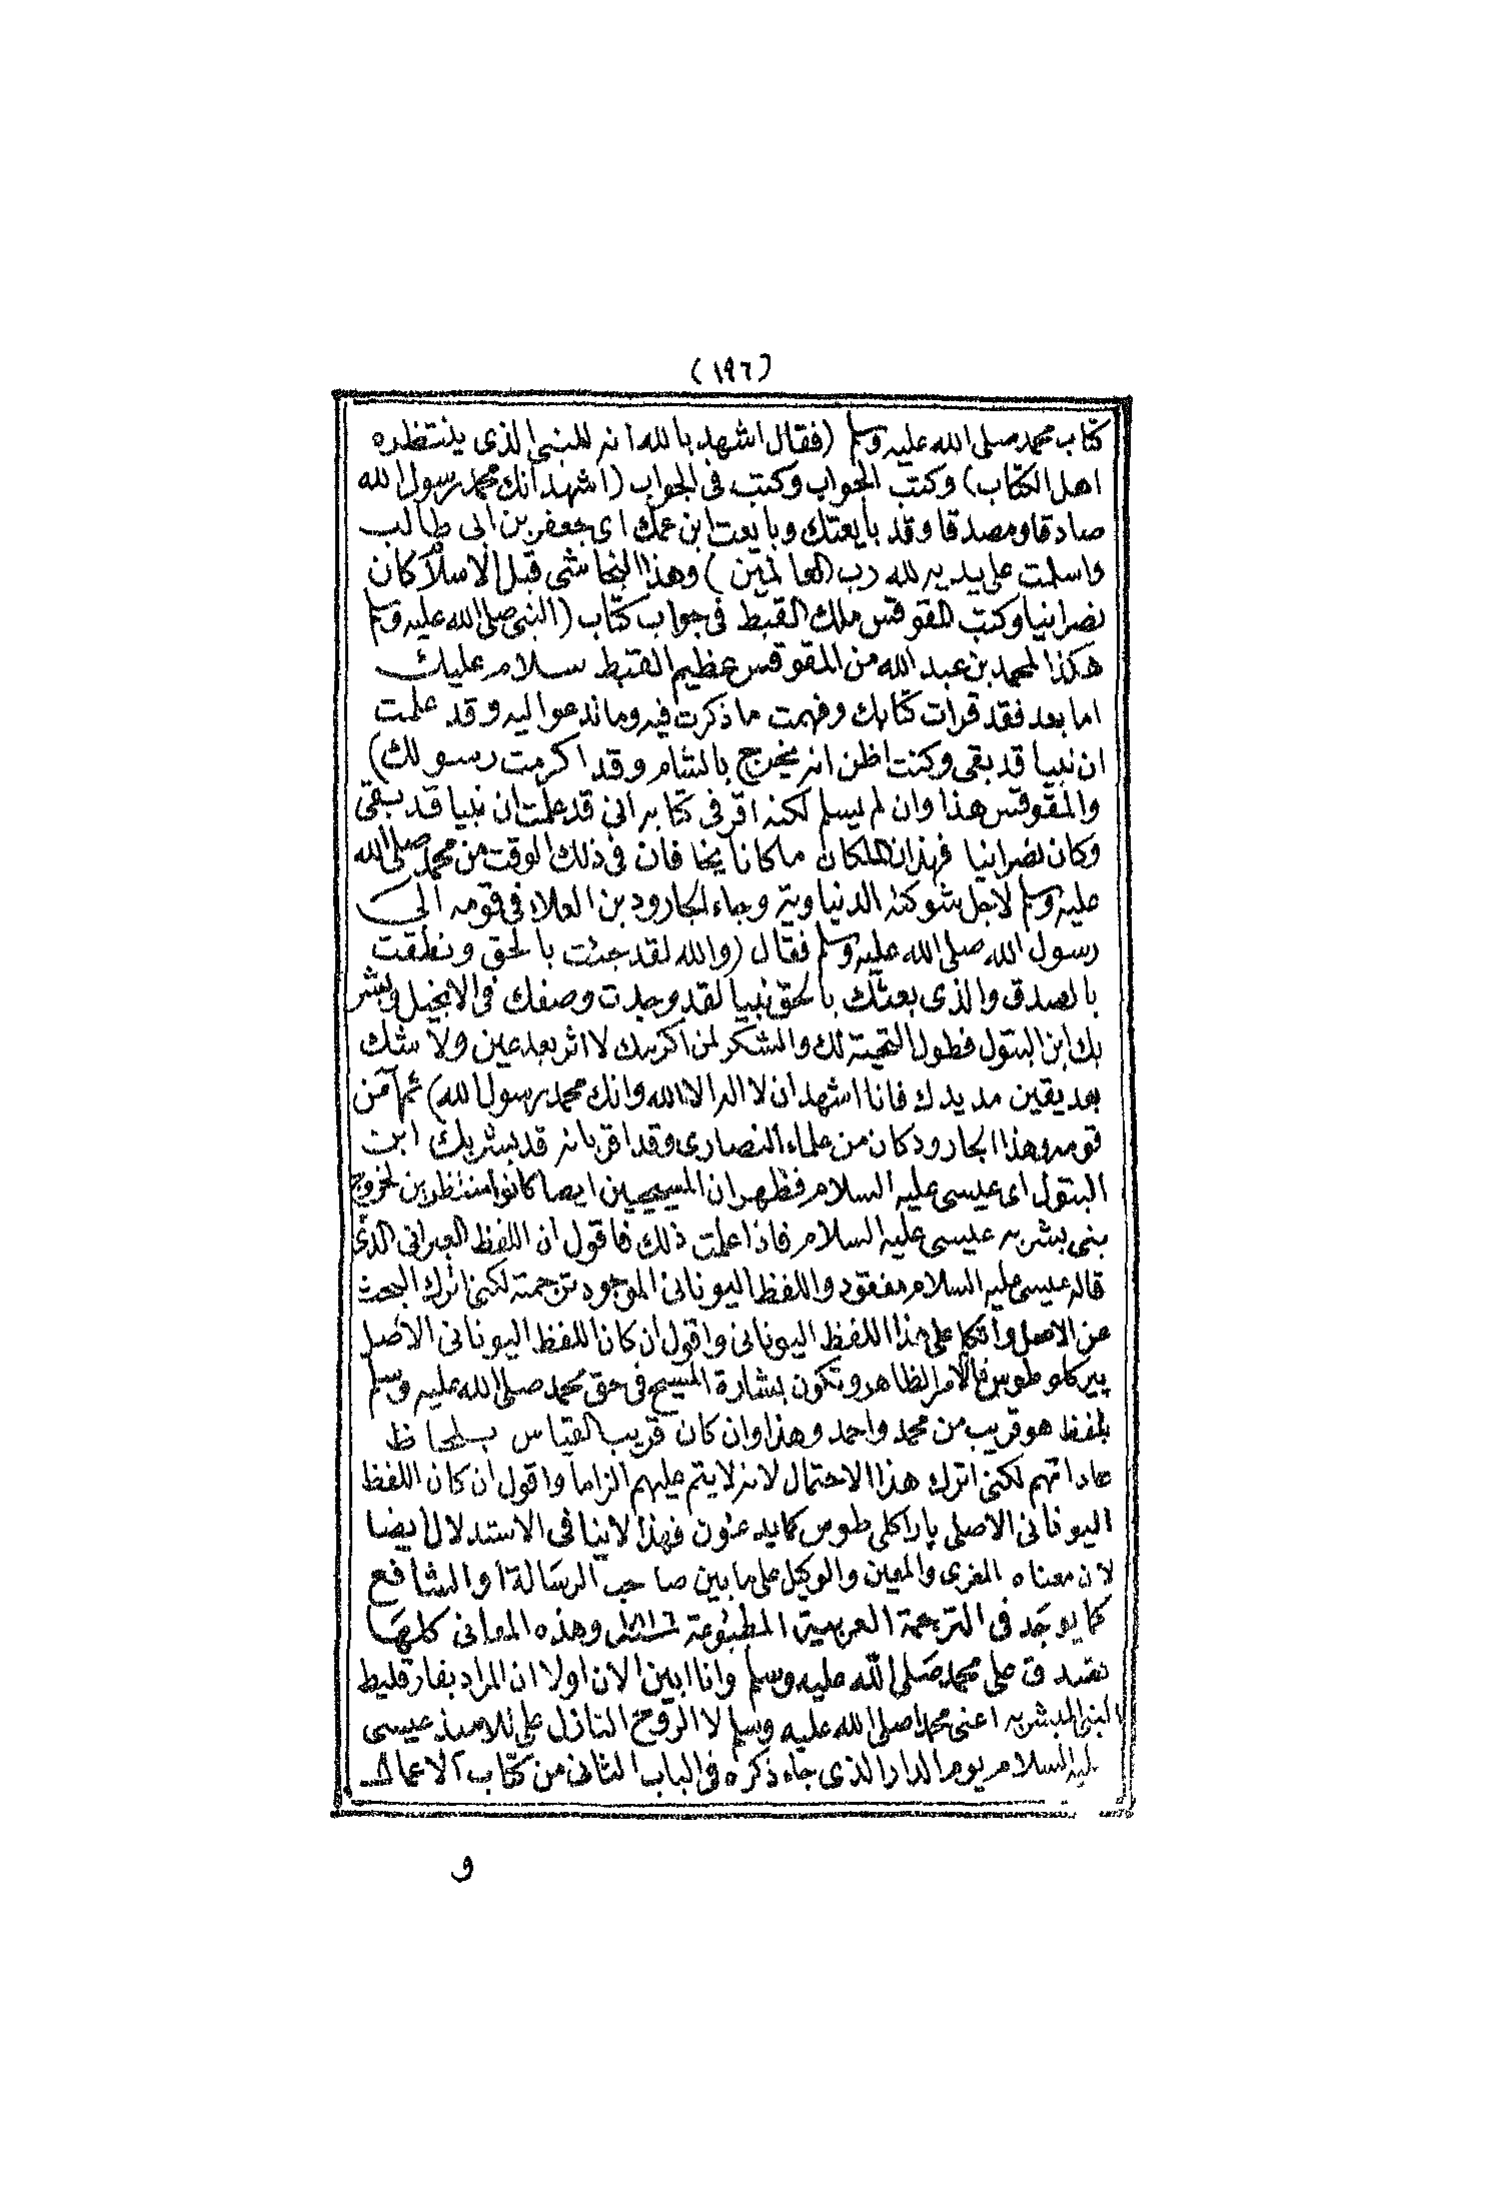 (١٩٦)
كتاب محمد صلى الله عليه وسلم (فقال اشهد بالله انه للنبي الذى ينتظره
اهل الكتاب) وكتب الجواب وكتب فى الجواب (اشهد انك محمد رسول الله
صادقا ومصدقا وقد بايعتك وبايعت ابن عمك اى جعفر بن ابى طالب
واسلمت على يديه لله رب العالمين) وهذا النجاشى قبل الاسلام كان
نصرانيا وكتب المقوقس ملك القبط فى جواب كتاب (النبى صلى الله عليه وسلم
هكذا لمحمد بن عبد الله من المقوقس عظيم القبط سلام عليك
اما بعد فقد قرات كتابك وفهمت ما ذكرت فيه وما تدعوا اليه وقد علمت
ان نبيا قد بقى وكنت اظن انه يخرج بالشام وقد اكرمت رسولك)
والمقوقس هذا وان لم يسلم لكنه اقر فى كتابه انى قد علمت ان نبيا قد بقى
وكان نصرانيا فهذان الملكان ما كانا يخافان فى ذلك الوقت من محمد صلى الله
عليه وسلم لاجل شوكته الدنياوية وجاء الجارود بن العلاء فى قومه الى
رسول الله صلى الله عليه وسلم فقال (والله لقد جئت بالحق ونطقت
بالصدق والذى بعثك بالحق نبيا لقد وجدت وصفك فى الانجيل وبشر
بك ابن البتول فطول التحية لك والشكر لمن اكرمك لا اثر بعد عين ولا شك
بعد يقين مد يدك فانا اشهد ان لا اله الا الله وانك محمد رسول الله) ثم آمن
قومه وهذا الجارود كان من علماء النصارى وقد اقر بانه قد بشر بك ابن
البتول اى عيسى عليه السلام فظهر ان المسيحيين ايضا كانوا منتظرين لخروج
بنى بشر به عيسى عليه السلام فاذا علمت ذلك فاقول ان اللفظ العبرانى الذى
قاله عيسى عليه السلام مفقود واللفظ اليونانى الموجود ترجمته لكنى اترك البحث
عن الاصل واتكلم على هذا اللفظ اليونانى واقول ان كان اللفظ اليونانى الاصل
پيركلوطوس فالامر ظاهر وتكون بشارة المسيح فى حق محمد صلى الله عليه وسلم
بلفظ هو قريب من محمد واحمد وهذا وان كان قريب القياس بلحاظ
عاداتهم لكنى اترك هذا الاحتمال لانه لا يتم عليهم الزاما واقول ان كان اللفظ
اليونانى الاصلى پاراكلى طوس كما يدعون فهذا لا ينافى الاستدلال ايضا
لان معناه المعزى والمعين والوكيل على ما بين صاحب الرسالة او الشافع
كما يوجد فى الترجمة العربية المطبوعة ١٨١٦ وهذه المعانى كلها
تصدق على محمد صلى الله عليه وسلم وانا ابين الان اولا ان المراد بفارقليط
النبى المبشر به اعنى محمدا صلى الله عليه وسلم لا الروح النازل على تلاميذ عيسى
عليه السلام يوم الدار الذى جاء ذكره فى الباب الثانى من كتاب الاعمال
و